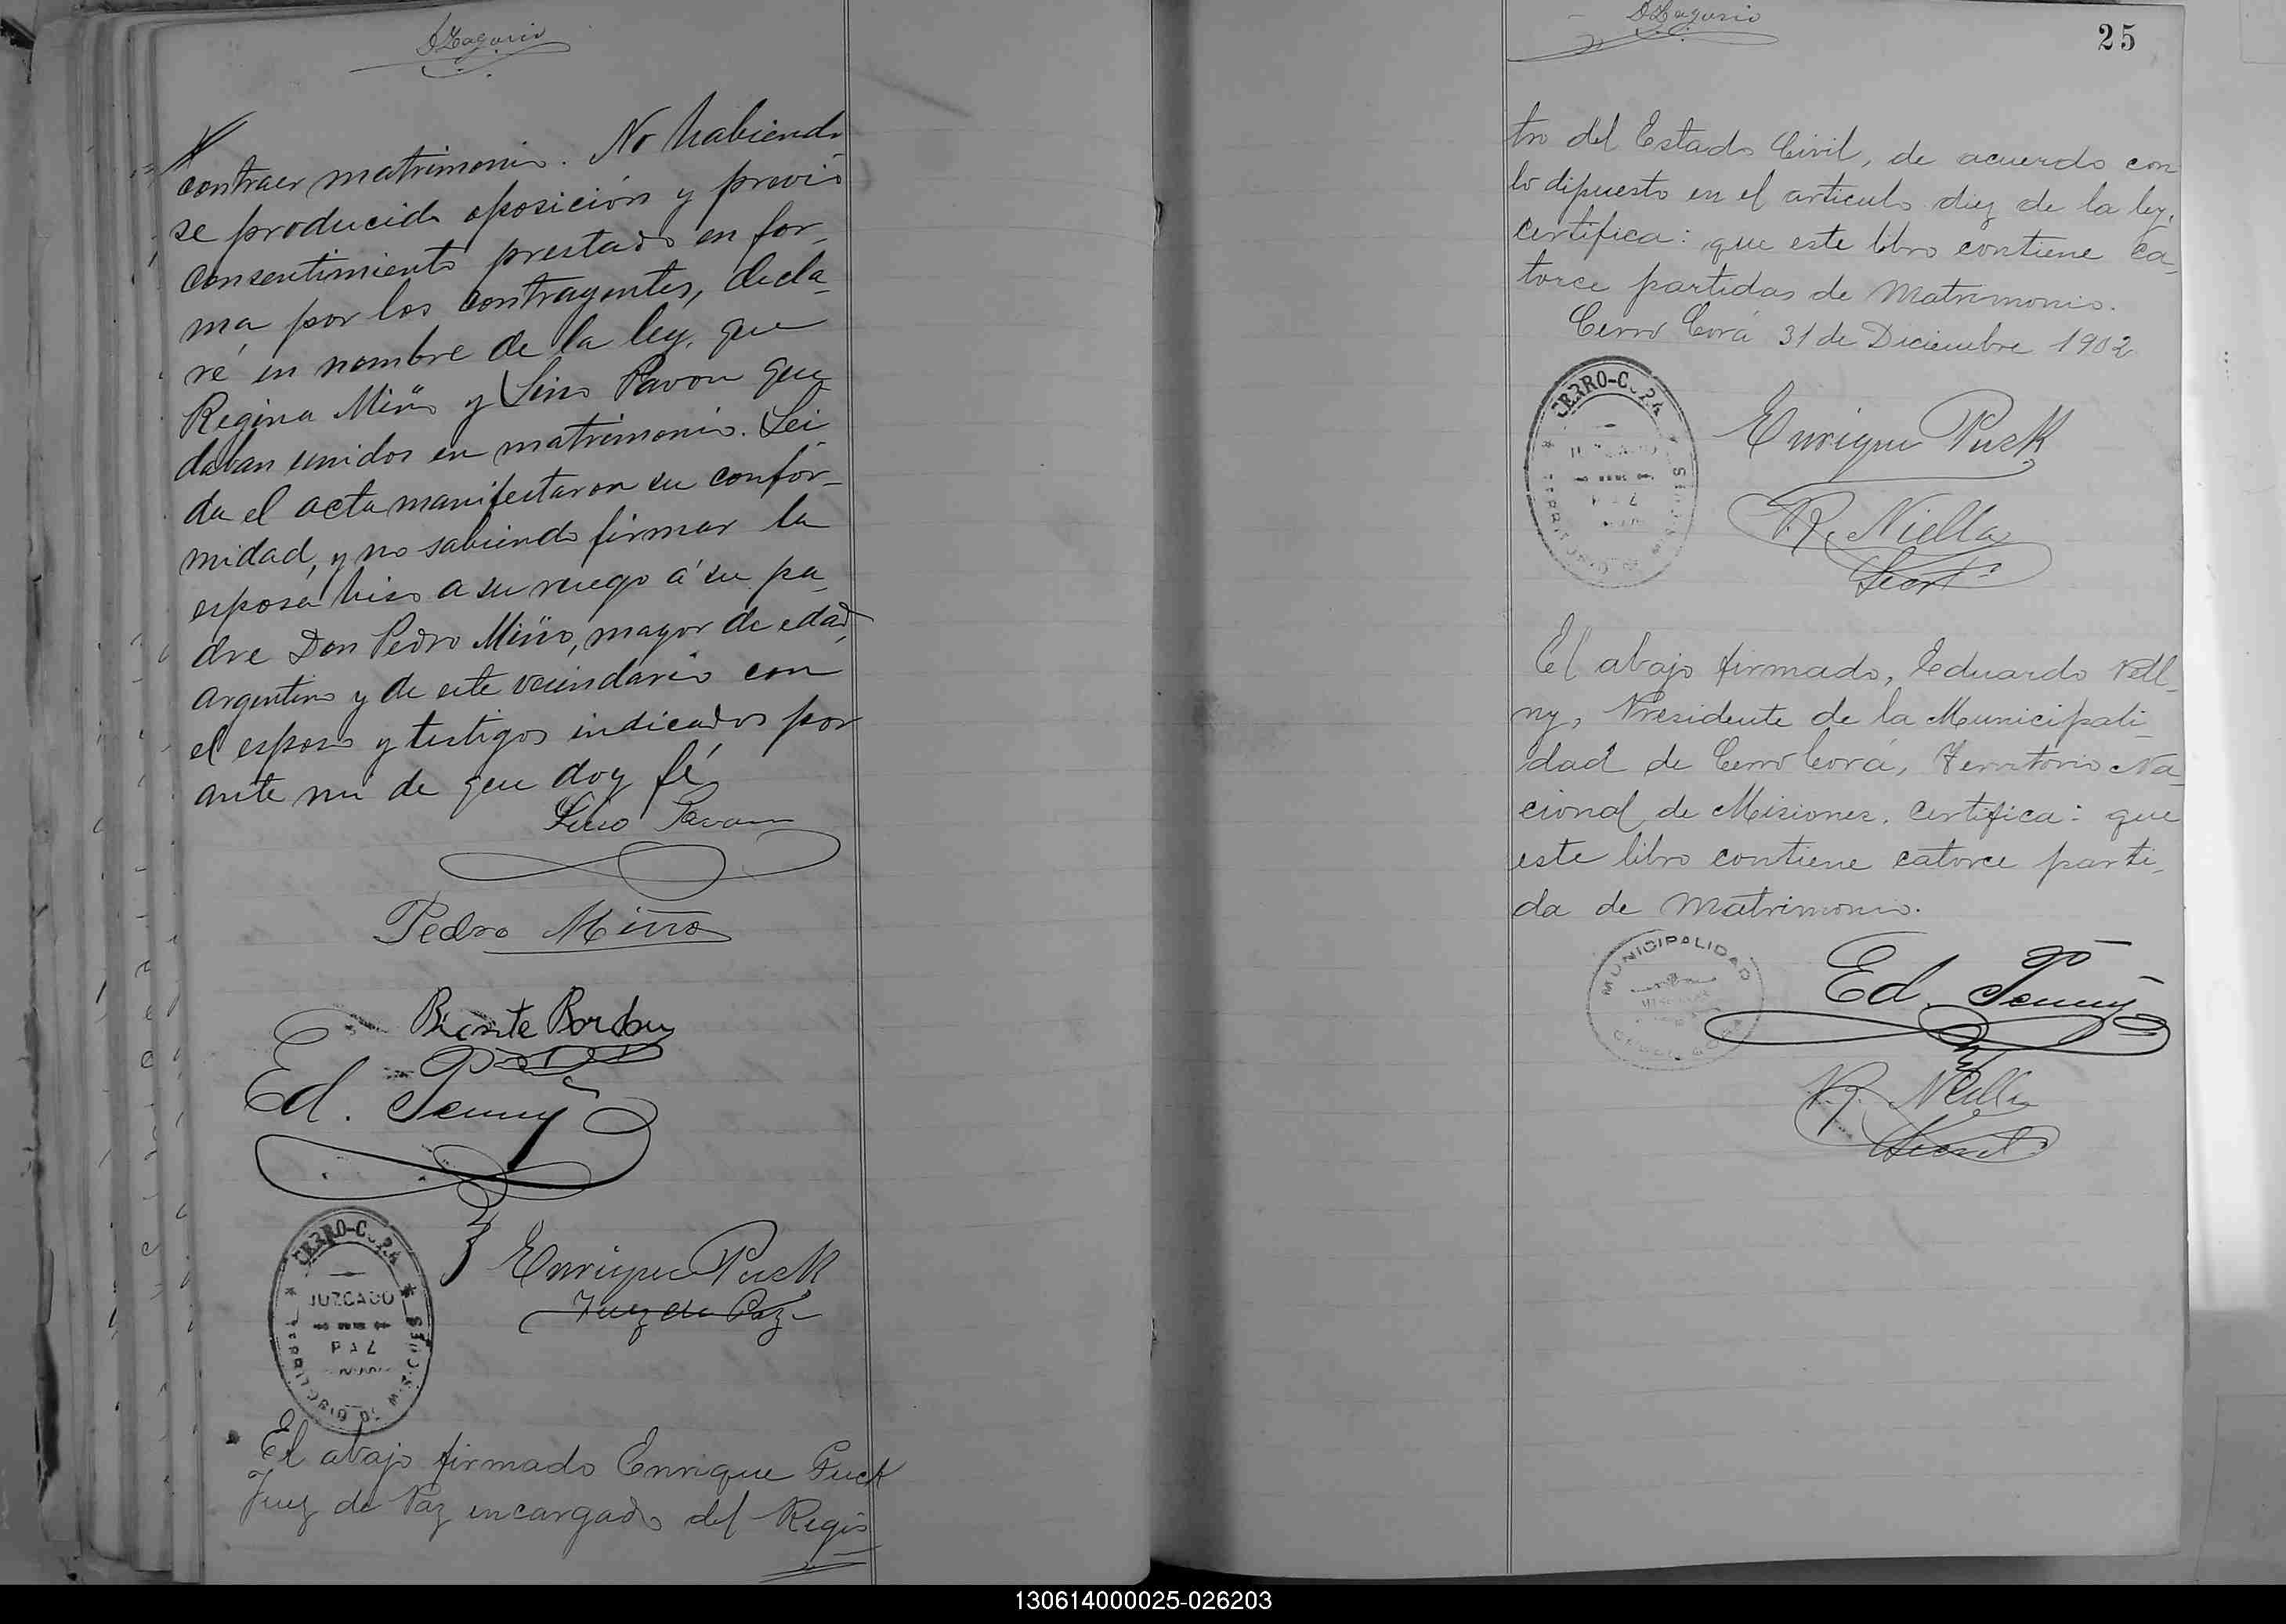 DZagurio
contraer matrimonio. No habiendo
se producido oposición y previo
consentimiento prestado en for-
ma por los contrayentes, decla-
ré en nombre de la ley, que
Regina Miño y Lino Pavon que
daban unidos en matrimonio. Lei-
da el acta manifestaron su confor-
midad, y no sabiendo firmar la
esposa hiso a su ruego á su pa-
dre Don Pedro Miño, mayor de edad,
argentino y de este vecindario con
el esposo y testigos indicados por
ante mi de que doy fé,
Lino Pavon
Pedro Miño
Ed.
CERRO-CORA
JUZGADO
PAZ
Enrique Puck
Juez de Paz
El abajo firmado Enrique Puck
Juez de Paz encargado del Regis
DZagurio
25
tro del Estado Civil, de acuerdo con
lo dipuesto en el articulo diez de la ley,
certifica: que este libro contiene ca-
torce partidas de Matrimonio.
Cerro Corá 31 de Diciembre 1902
CERRO-CORA
PAZ
Enrique Puck
R. Niella
Secret
El abajo firmado, Eduardo
Presidente de la Municipali-
dad de Cerro Corá, Territorio Na-
cional de Misiones, certifica: que
este libro contiene catorce parti-
da de Matrimonio.
MUNICIPALIDAD
Ed.
R. Niella
Secret
130614000025-026203